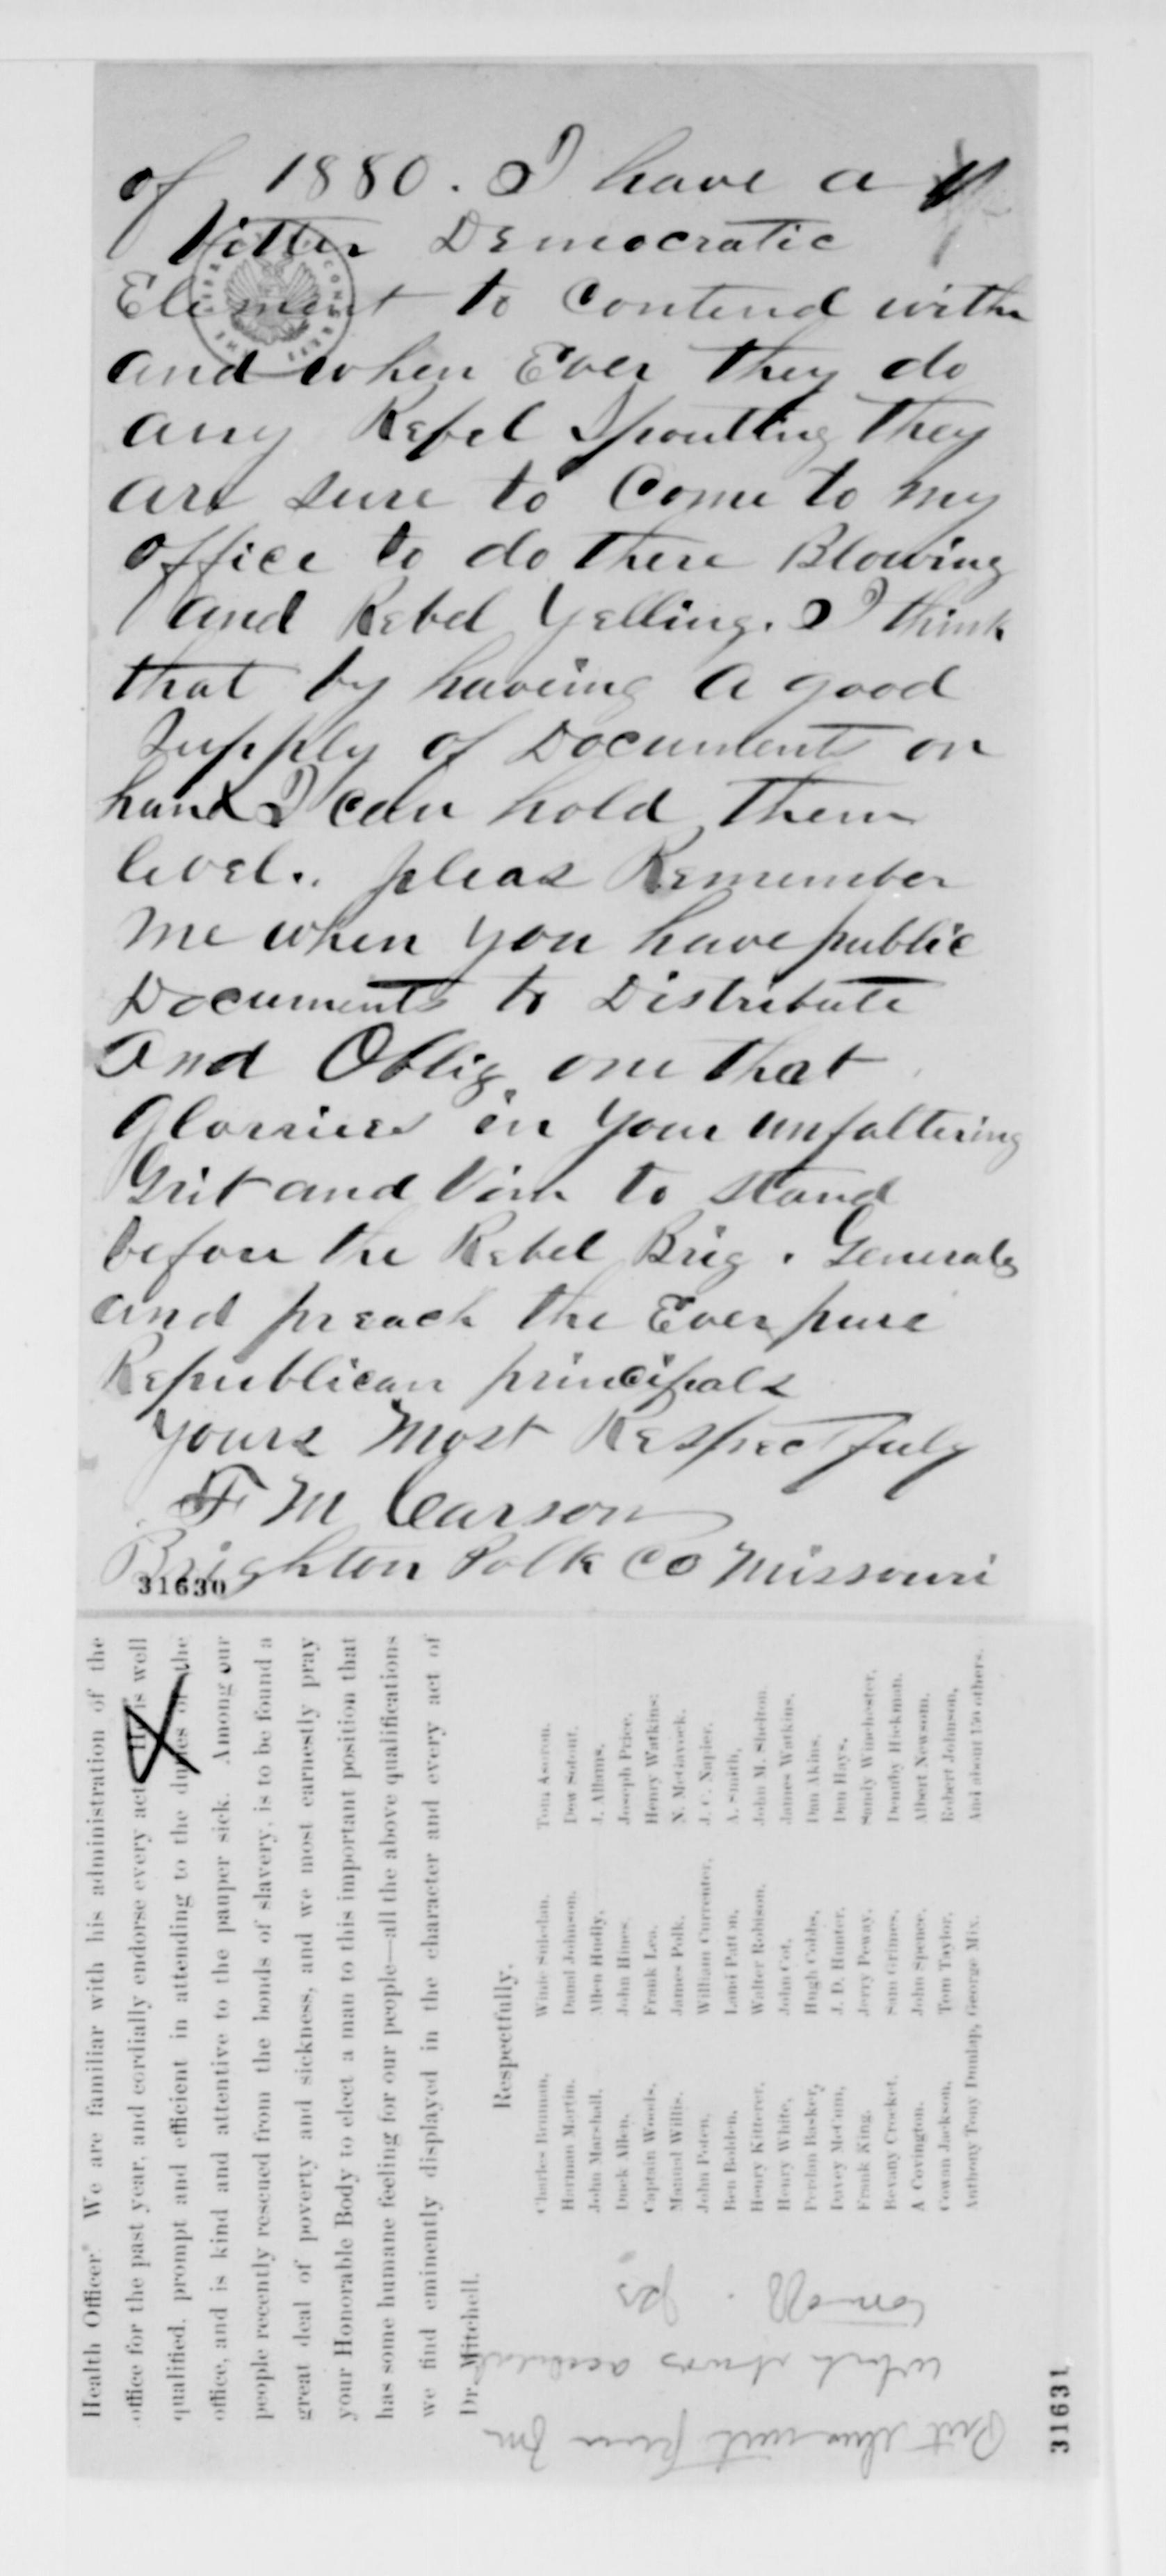 of 1880. I have a
Bitter Democratic
Element to Contend with
and when Ever they do
any Rebel Spoutting they
are sure to Come to my
office to do there Blowing
and Rebel Yelling. I think
that by haveing a good
Supply of Documents on
hand I can hold them
level. pleas Remember
me when you have public
Documents to Distribute
and Oblig one that
Glorries in your unfaltering
Grit and Vim to stand
before the Rebel Brig. Generals
and preach the Ever pure
Republican principals
yours most Respectfuly
F M Carson
Brighton Polk Co Missouri
31630
Health Officer. We are familiar with his administration of the
office for the past year, and cordially endorse every act. He is well
qualified, prompt and efficient in attending to the duties of the
office, and is kind and attentive to the pauper sick. Among our
people recently rescued from the bonds of slavery, is to be found a
great deal of poverty and sickness, and we most earnestly pray
your Honorable Body to elect a man to this important position that
has some humane feeling for our people—all the above qualifications
we find eminently displayed in the character and every act of
Dr. Mitchell.
Respectfully,
Charles Brennan,
Herman Martin, Danal Johnson,
John Marshall, Allen Hudly, J. Allums,
Duck Allen, John Hines, Joseph Price,
Captain Woods, Frank Lea, Henry Watkins,
Manual Willis, James Polk, N. McGavock,
John Poten, William Currenter, J. C. Napier,
Ben Bolden, Land Patton, A. Smith,
Henry Kitterer, Walter Robison, John M. Shelton,
Henry White, John Cot, James Watkins,
Hugh Cobbs, Dan Akins,
Davey McCum, J. D. Hunter, Dan Hays,
Frank King, Jerry Peway, Sandy Winchester,
Bevany Crocket, Sam Grimes, Hickman,
A Covington, John Spence, Albert Newsom,
Cowan Jackson, Tom Taylor, Robert Johnson,
Anthony Tony Dunlap, George Mix. And about 150 others.
31631